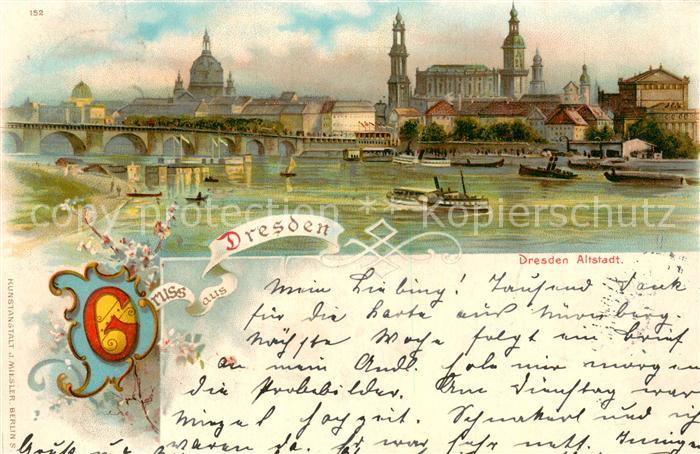 152
copyright protection * Kopierschutz
Dresden
Gruss aus
Dresden Altstadt.
Mein Liebling! Tausend Dank
für die Karte aus Nürnberg.
Nächste Woche folgt ein Brief
an mein Andl. hole mir morgen
die Probebilder. Am Dienstag war
Hochzeit. und ich
waren da. Es war sehr nett.
Gruß u.
KUNSTANSTALT J. MIESLER, BERLIN S